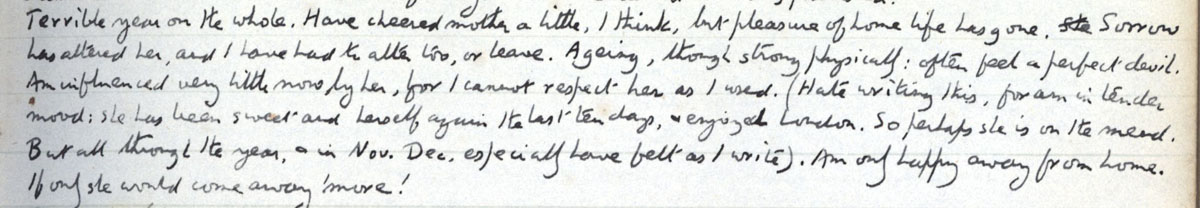 Terrible year on the whole. Have cheered mother a little, I think, but pleasure of home life has gone. She Sorrow
has altered her, and I have had to alter too, or leave. Ageing, though strong physically: often feel a perfect devil.
Am influenced very little now by her, for I cannot respect her as I used. (Hate writing this, for am in tender
mood: she has been sweet and herself again the last ten days, & enjoyed London. So perhaps she is on the mend.
But all through the year, & in Nov. Dec. especially have felt as I write). Am only happy away from home.
If only she would come away more!